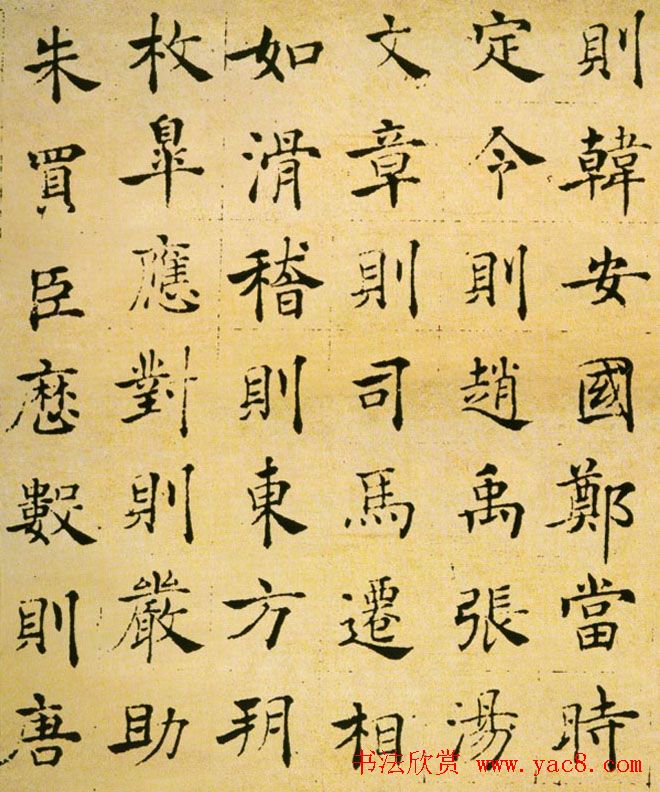 則韓安國鄭當時
定令則趙禹張湯
文章則司馬遷相
如滑稽則東方朔
枚皐應對則嚴助
朱買臣歷數則唐
书法欣赏 www.yac8.com